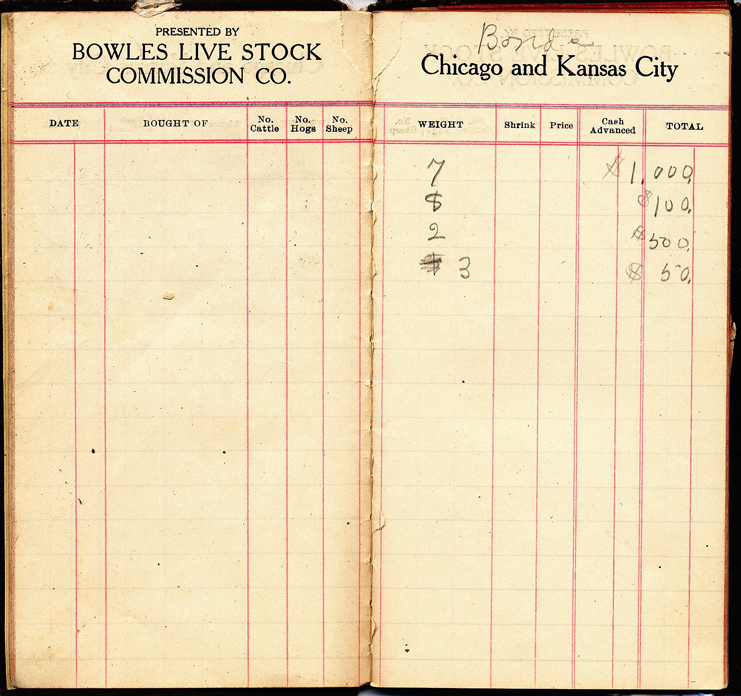 PRESENTED BY
BOWLES LIVE STOCK
COMMISSION CO.
DATE BOUGHT OF No. Cattle No. Hogs No. Sheep
Bonds
Chicago and Kansas City
WEIGHT Shrink Price Cash Advanced TOTAL
7 $1,000.
$100.
2 $500.
3 $50.